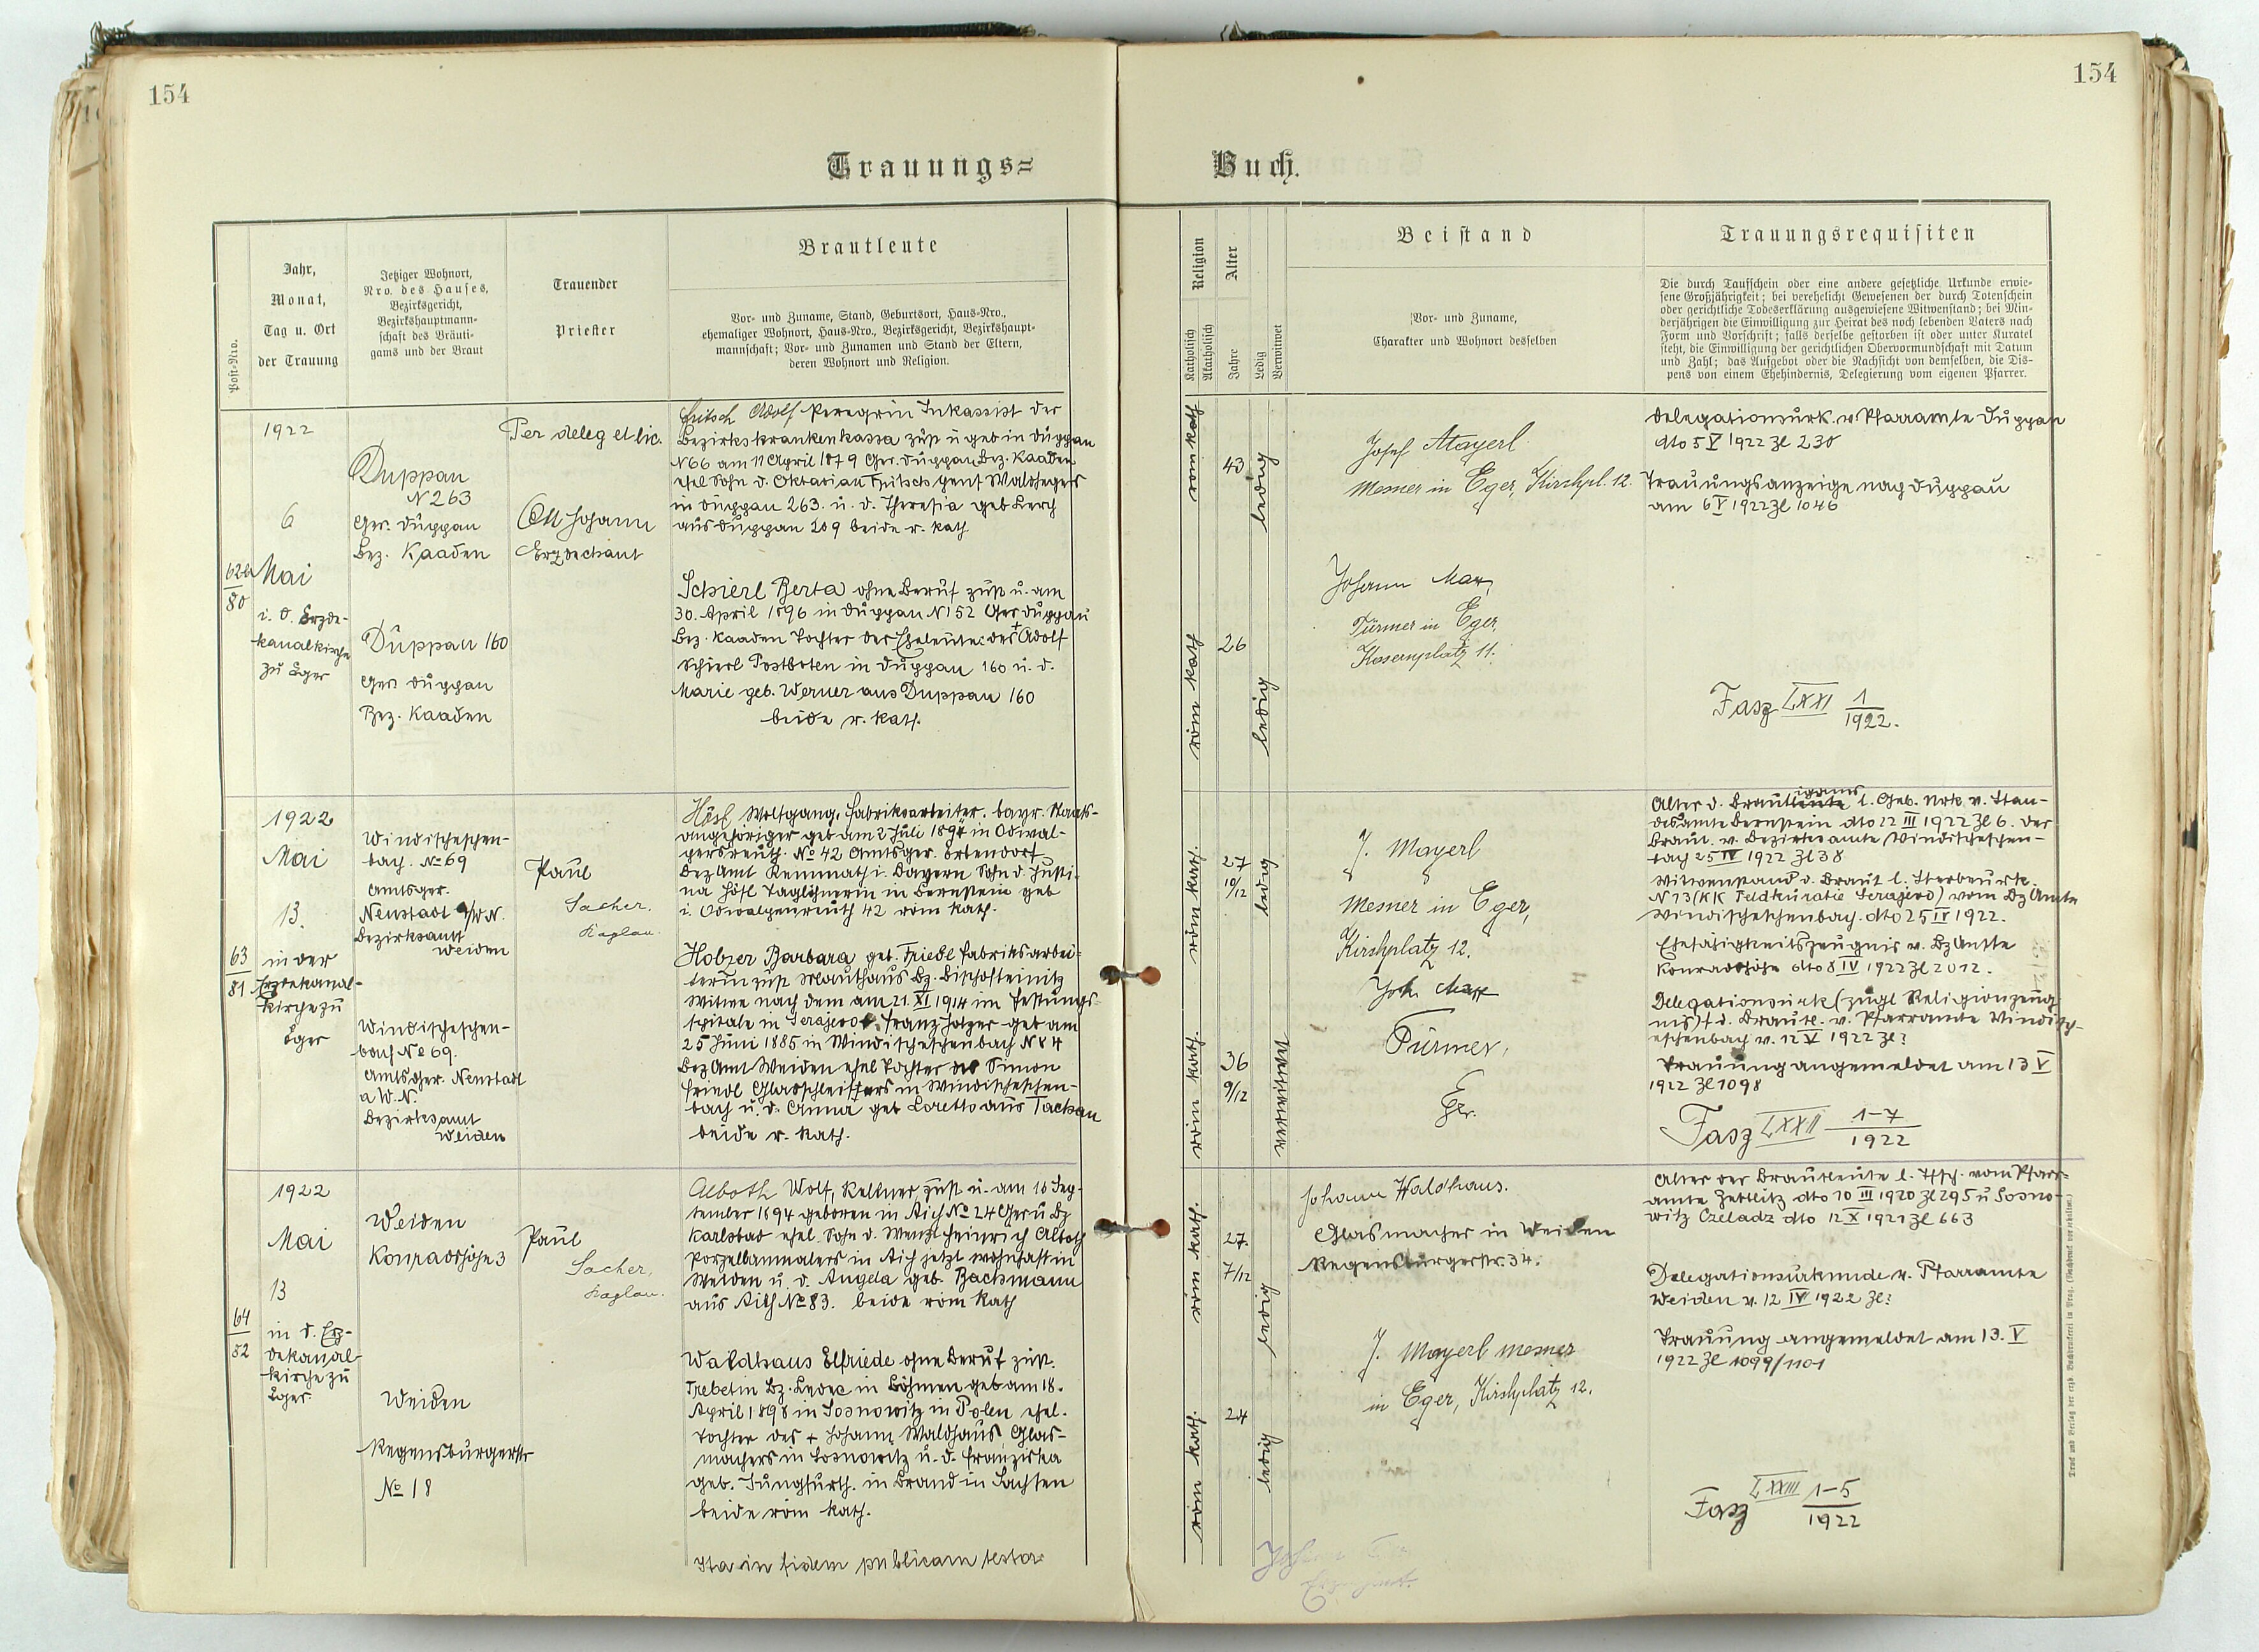 154
154
Trauungs=
Buch.
Post-Nro.
Jahr,
Monat,
Tag u. Ort
der Trauung
Jetziger Wohnort,
Nro. des Hauses,
Bezirksgericht,
Bezirkshauptmann-
schaft des Bräuti-
gams und der Braut
Trauender
Priester
Brautleute
Vor- und Zuname, Stand, Geburtsort, Haus-Nro.,
ehemaliger Wohnort, Haus-Nro., Bezirksgericht, Bezirkshaupt-
mannschaft; Vor- und Zunamen und Stand der Eltern,
deren Wohnort und Religion.
Religion
Katholisch
Akatholisch
Alter
Jahre
Ledig
Verwitwet
Beistand
Vor- und Zuname,
Charakter und Wohnort desselben
Trauungsrequisiten
Die durch Taufschein oder eine andere gesetzliche Urkunde erwie-
sene Großjährigkeit; bei verehelicht Gewesenen der durch Totenschein
oder gerichtliche Todeserklärung ausgewiesene Witwenstand; bei Min-
derjährigen die Einwilligung zur Heirat des noch lebenden Vaters nach
Form und Vorschrift; falls derselbe gestorben ist oder unter Kuratel
steht, die Einwilligung der gerichtlichen Obervormundschaft mit Datum
und Zahl; das Aufgebot oder die Nachsicht von demselben, die Dis-
pens von einem Ehehindernis, Delegierung vom eigenen Pfarrer.
62
80
1922
6
Mai
i. d. Erzde-
kanalkirche
zu Eger
Duppau
N 263
Ger. Duppau
Bez. Kaaden
Duppau 160
Ger. Duppau
Bez. Kaaden
Per deleg et lic.
Ott Johann
Erzdechant
Fritsch Adolf Peregrin Inkassist der
Bezirkskrankenkassa zust u geb in Duppau
N 66 am 11 April 1879 Ger. Duppau Bez. Kaaden
ehel Sohn d. Oktavian Fritsch gens Waldhegers
in Duppau 263. u. d. Theresia geb Lerch
aus Duppau 209 beide r. kath
Schierl Berta ohne Beruf zust u. am
30. April 1896 in Duppau N 152 Ger Duppau
Bez. Kaaden Tochter der Eheleute: des + Adolf
Schierl Postboten in Duppau 160 u. d.
Marie geb. Werner aus Duppau 160
beide r. kath.
röm kath
43
ledig
röm kath
26
ledig
Josef Mayerl
Mesner in Eger, Kirchpl. 12.
Johann Max,
Türmer in Eger,
Kasernplatz 11.
Delegationsurk. v. Pfarramte Duppau
dto 5 V 1922 Zl 230
Trauungsanzeige nach Duppau
am 6 V 1922 Zl 1046
Fasz LXXI 1
1922.
63
81
1922
Mai
13.
in der
Erzdekanal-
kirche zu
Eger
Windischeschen-
bach. No 69
Amtsger.
Neustadt a/W N.
Bezirksamt
Weiden
Windischeschen-
bach No 69.
Amtsger. Neustadt
a W. N.
Bezirksamt
Weiden
Paul
Sacher,
Kaplan.
Hösl Wolfgang, Fabriksarbeiter. bayr. Staats-
angehöriger geb am 2 Juli 1894 in Odwal-
persreuth. No 42 Amtsger. Erbendorf
Bez Amt Kemnath i. Bayern Sohn d. Justi-
na Hösl Taglöhnerin in Bernstein geb
i. Odwalpenreuth 42 röm kath.
Holzer Barbara geb. Friedl Fabriksarbei-
terin zust Mauthaus Bz. Bischofteinitz
Witwe nach dem am 21. XI 1914 im Festungs-
spitale in Serajevo + Franz Holzer geb am
25 Juni 1885 in Windischeschenbach N 84
Bez Amt Weiden ehel Tochter des Simon
Friedl Glasschleifers in Windischeschen-
bach u. d. Anna geb Loretto aus Tachau
beide r. kath.
röm kath.
27
10/12
ledig
röm kath.
36
9/12
verwitwet
J. Mayerl
Mesner in Eger,
Kirchplatz 12.
Joh. Max
Türmer,
Eger.
Alter d. Bräutigams l. Geb. Urk v. Stan-
desamte Bernstein dto 22 III 1922 Zl 6. der
Braut. v. Bezirksamte Windischeschen-
bach 25 IV 1922 Zl 38
Witwenstand d. Braut l. Sterbeurk.
N 13 (KK Feldkuratie Serajevo) vom Bz Amte
Windischeschenbach. dto 25 IV 1922.
Ehefähigkeitszeugnis v. Bz Amte
Konradshöhe dto 8 IV 1922 Zl 2012.
Delegationsurk (zugl Religionszeug-
nis) f d. Brautl. v. Pfarramte Windisch-
eschenbach v. 12 V 1922 Zl ?
Trauung angemeldet am 13 V
1922 Zl 1098
Fasz LXXII 1-7
1922
64
82
1922
Mai
13
in d. Erz-
dekanal-
kirche zu
Eger.
Weiden
Konradshöhe 3
Weiden
Regensburgerstr
No 18
Paul
Sacher,
Kaplan.
Alboth Wolf, Kellner, zust u. am 16 Sep-
tember 1894 geboren in Aich No 24 Ger u Bz
Karlsbad ehel. Sohn d. Wenzl Heinrich Alboth
Porzellanmalers in Aich jetzt wohnhaft in
Weiden u. d. Angela geb. Bachmann
aus Aich No 83. beide röm kath
Waldhaus Elfriede ohne Beruf zust.
Trebetin Bz. Ledec in Böhmen geb am 18.
April 1898 in Sosnowitz in Polen ehel.
Tochter des + Johann Waldhaus, Glas-
machers in Sosnowitz u. d. Franziska
geb. Jungfurth. in Brand in Sachsen
beide röm kath.
Ita in fidem publicam testor
röm kath.
27.
7/12
ledig
röm kath.
24
ledig
Johann Waldhaus.
Glasmacher in Weiden
Regensburgerstr. 34.
J. Mayerl Mesner
in Eger, Kirchplatz 12.
Johann
Alter der Brautleute l. Tfsch. vom Pfarr-
amte Zettlitz dto 10 III 1920 Zl 295 u Sosno-
witz Czeladz dto 12 X 1921 Zl 663
Delegationsurkunde v. Pfarramte
Weiden v. 12 IV 1922 Zl ?
Trauung angemeldet am 13. V
1922 Zl 1099/1101
Fasz LXXIII 1-5
1922